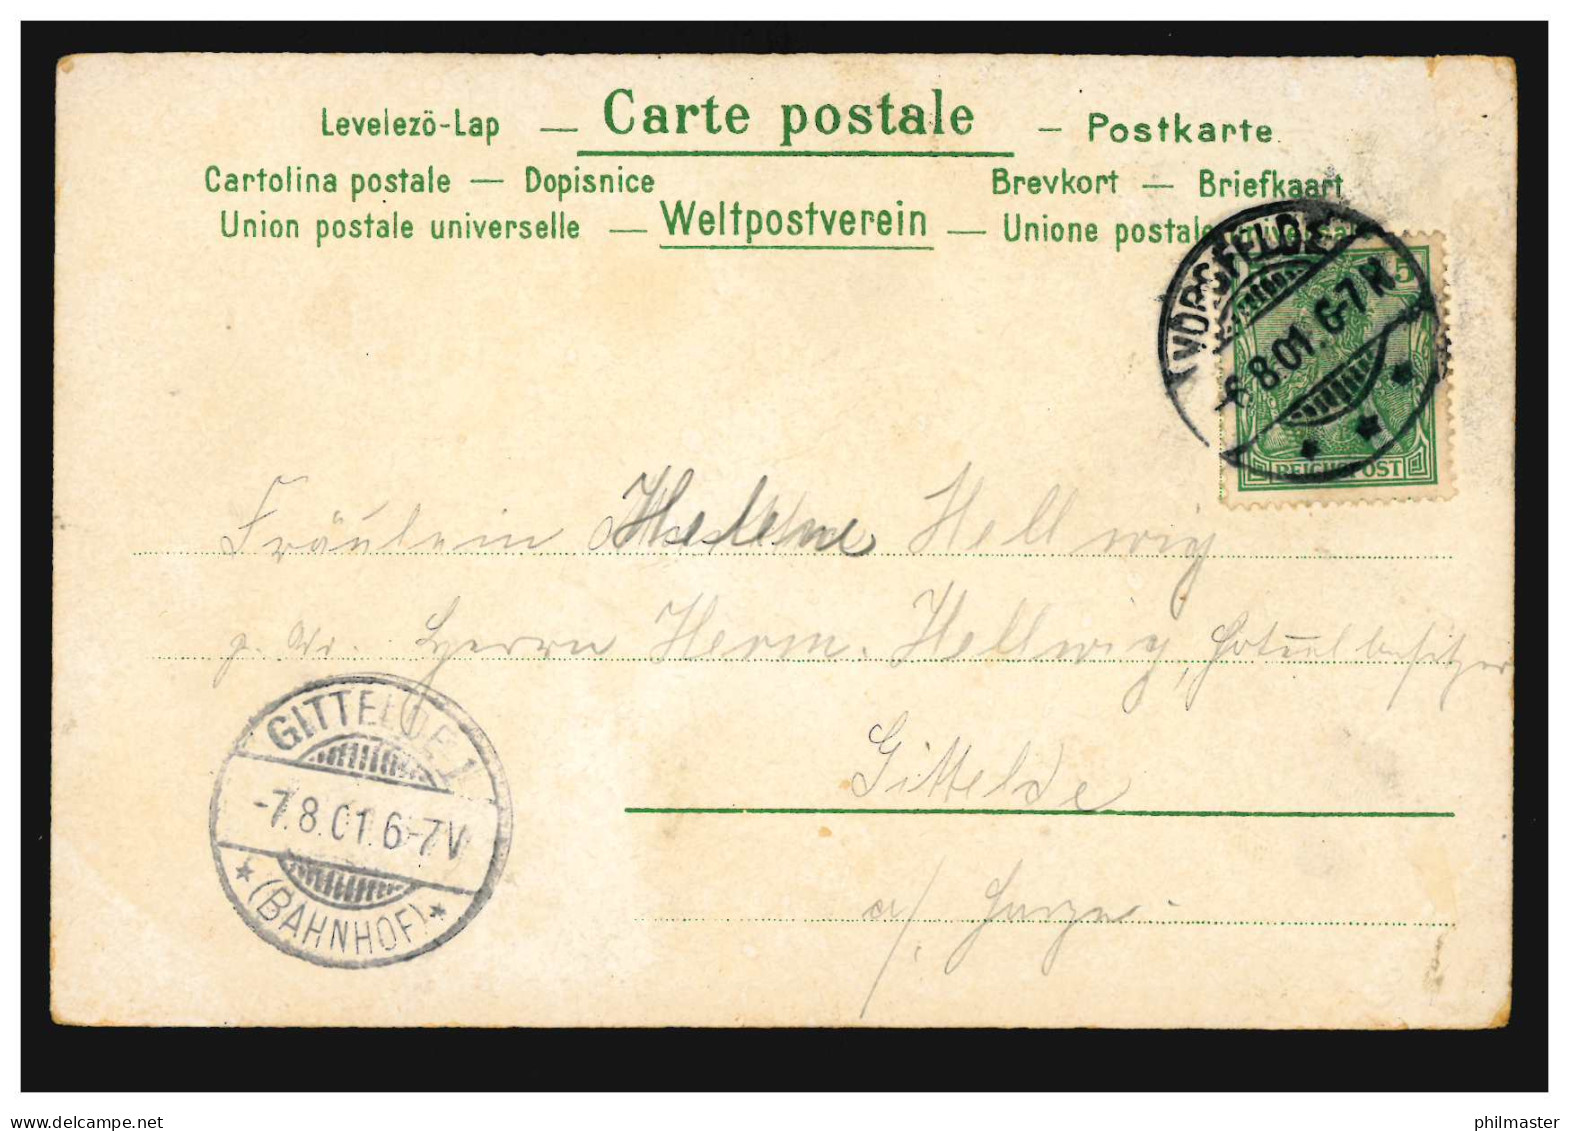 Levelezö-Lap — Carte postale — Postkarte.
Cartolina postale — Dopisnice Brevkort — Briefkaart
Union postale universelle — Weltpostverein — Unione postale universale
VORSFELDE
-6.8.01.6-7N.
5
REICHSPOST
Fräulein Helene Hellwig
p. Adr. Herrn Herm. Hellwig, Hotelbesitzer
Gittelde
a/ Harz.
GITTELDE 1
-7.8.01.6-7V
* (BAHNHOF) *
www.delcampe.net
philmaster